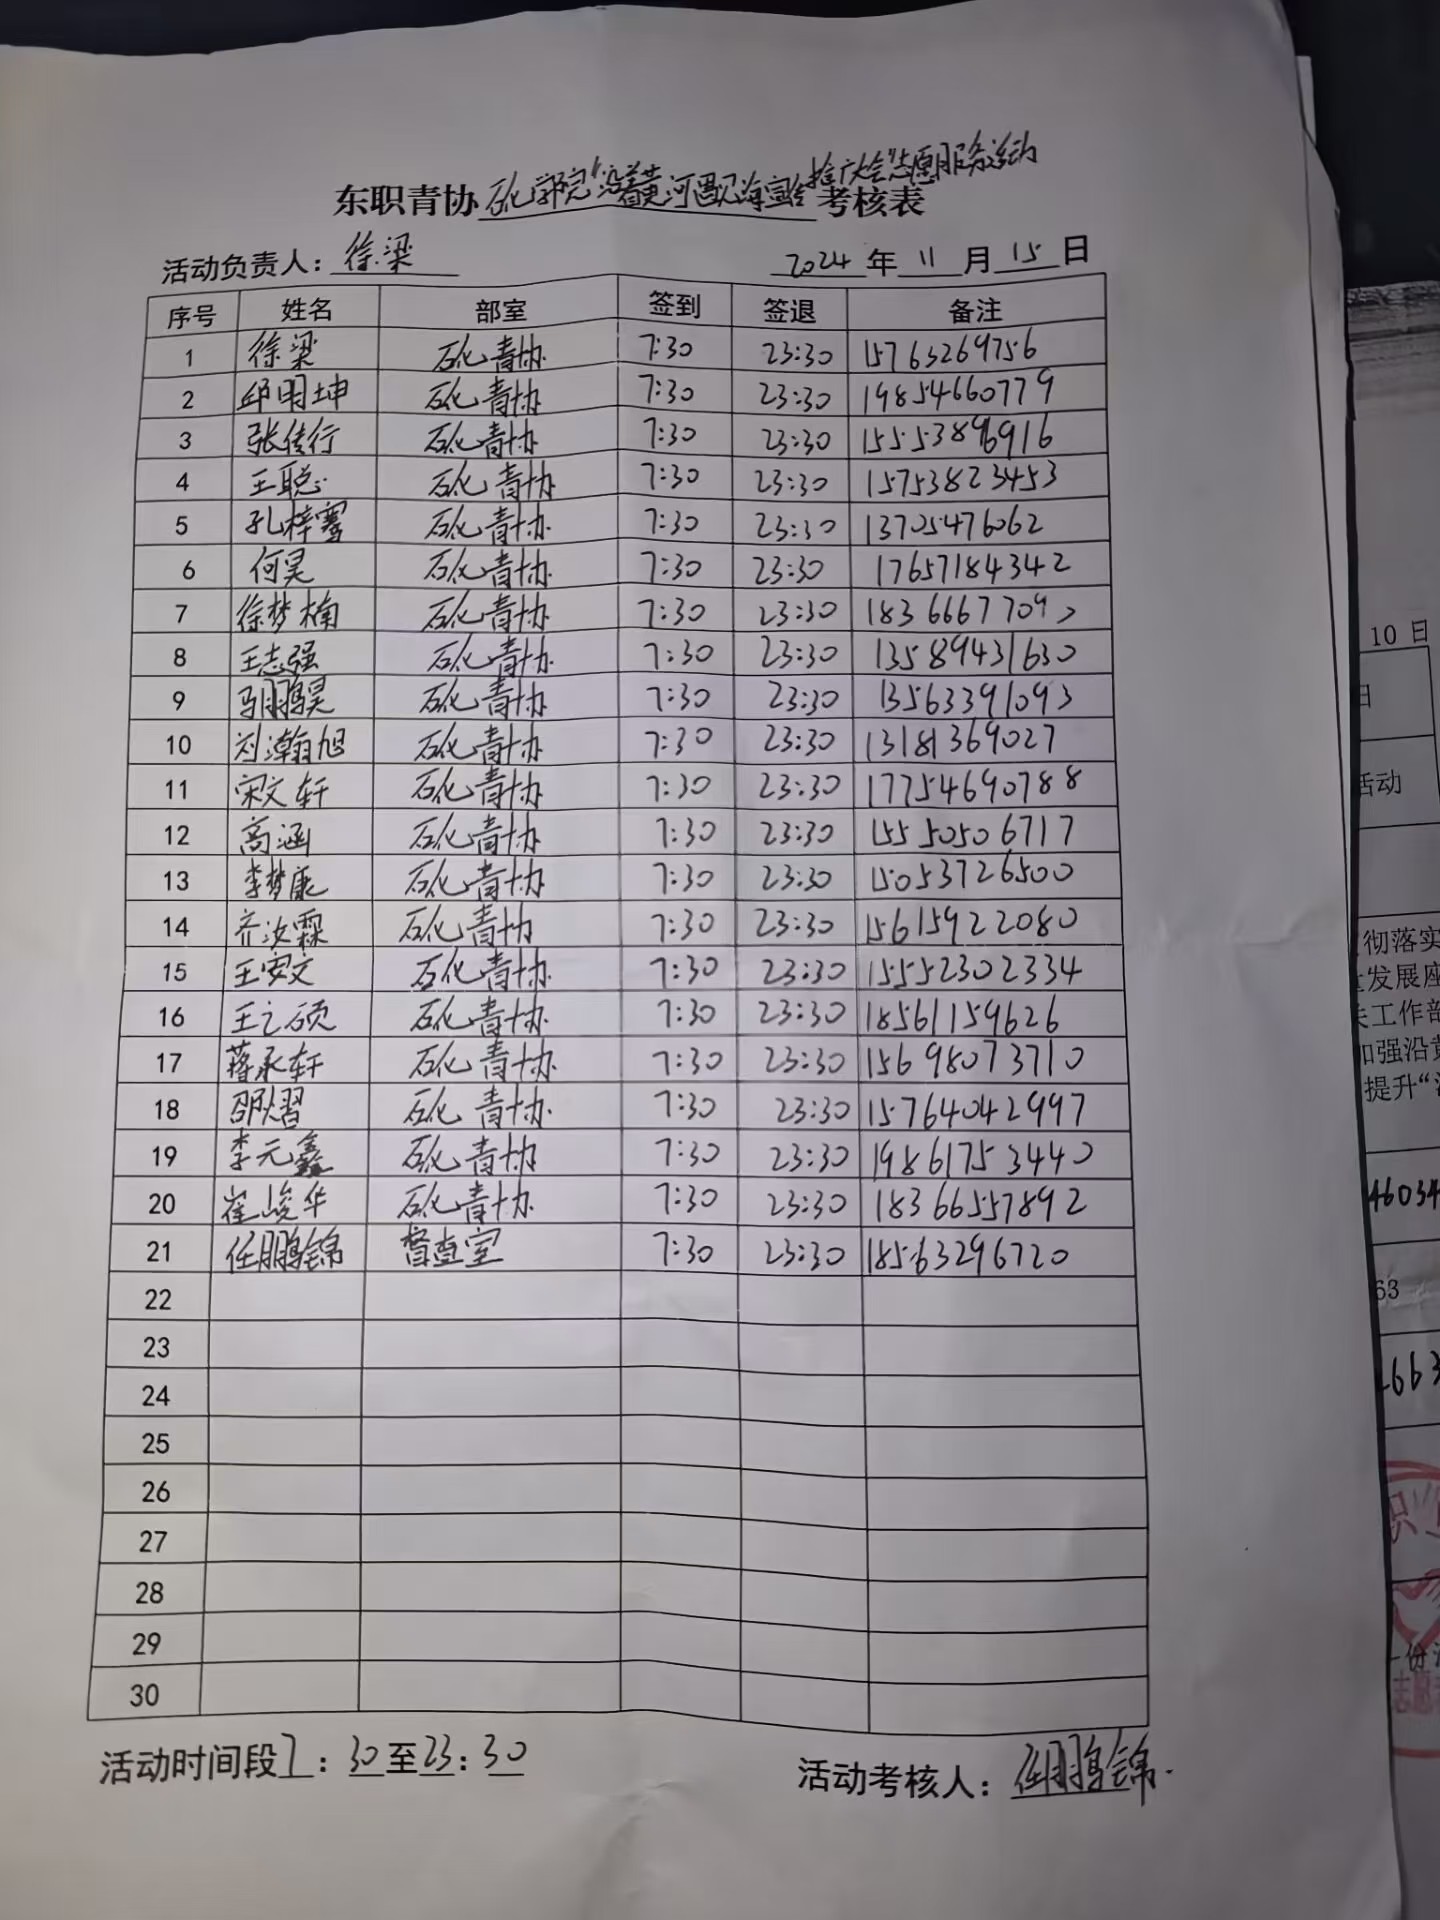 推广大会"志愿服务活动
东职青协 石化学院"沿着黄河遇见海宣传 考核表
活动负责人：徐梁 2024 年 11 月 15 日
序号 姓名 部室 签到 签退 备注
1 徐梁 石化青协 7:30 23:30 15763269756
2 邱明坤 石化青协 7:30 23:30 19854660779
3 张传行 石化青协 7:30 23:30
4 王聪 石化青协 7:30 23:30 15753823453
5 孔梓骞 石化青协 7:30 23:30 13705476062
6 何昊 石化青协 7:30 23:30 17657184342
7 徐梦楠 石化青协 7:30 23:30
8 王志强 石化青协 7:30 23:30 13589431630
9 马鹏昊 石化青协 7:30 23:30 13563391093
10 刘瀚旭 石化青协 7:30 23:30 13181369027
11 宋文轩 石化青协 7:30 23:30 17754690788
12 高涵 石化青协 7:30 23:30 15550506717
13 李梦康 石化青协 7:30 23:30 15053726500
14 齐汝霖 石化青协 7:30 23:30 15615922080
15 王安文 石化青协 7:30 23:30 15552302334
16 王之硕 石化青协 7:30 23:30 18561159626
17 蒋承轩 石化青协 7:30 23:30 15698073710
18 邵熠 石化青协 7:30 23:30 15764042997
19 李元鑫 石化青协 7:30 23:30 19861753440
20 崔峻华 石化青协 7:30 23:30 18366557892
21 任鹏锦 督查室 7:30 23:30 18563296720
22
23
24
25
26
27
28
29
30
活动时间段7：30至23：30 活动考核人：任鹏锦.
10 日
日
活动
彻落实
发展座
关工作部
加强沿黄
提升"
46034
63
663